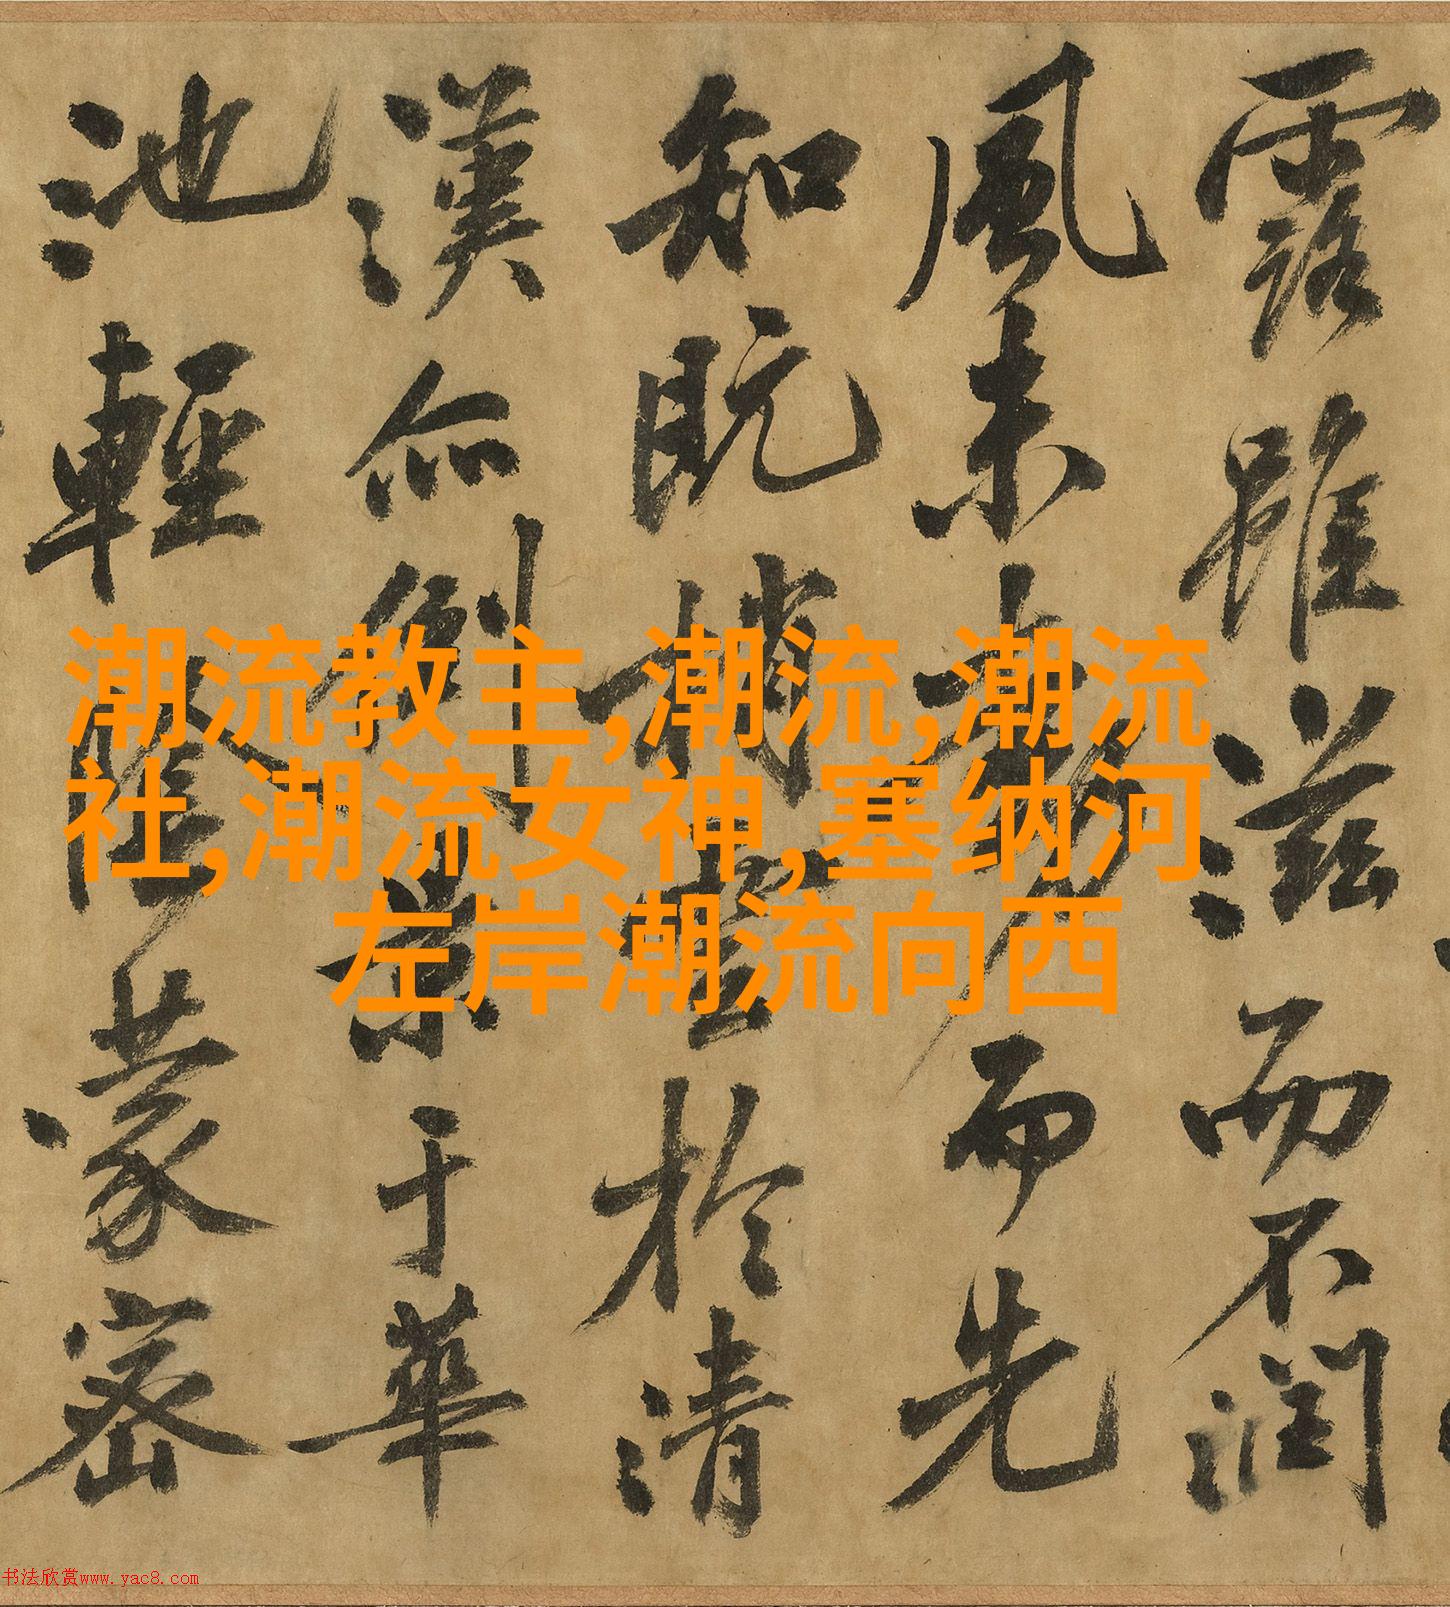 露雖滋而不潤
風未動而先
知既梢雲於清
漢亦倒景于華
池輕陰蒙密
潮流教主,潮流,潮流
社,潮流女神,塞纳河
左岸潮流向西
书法欣赏www.yac8.com